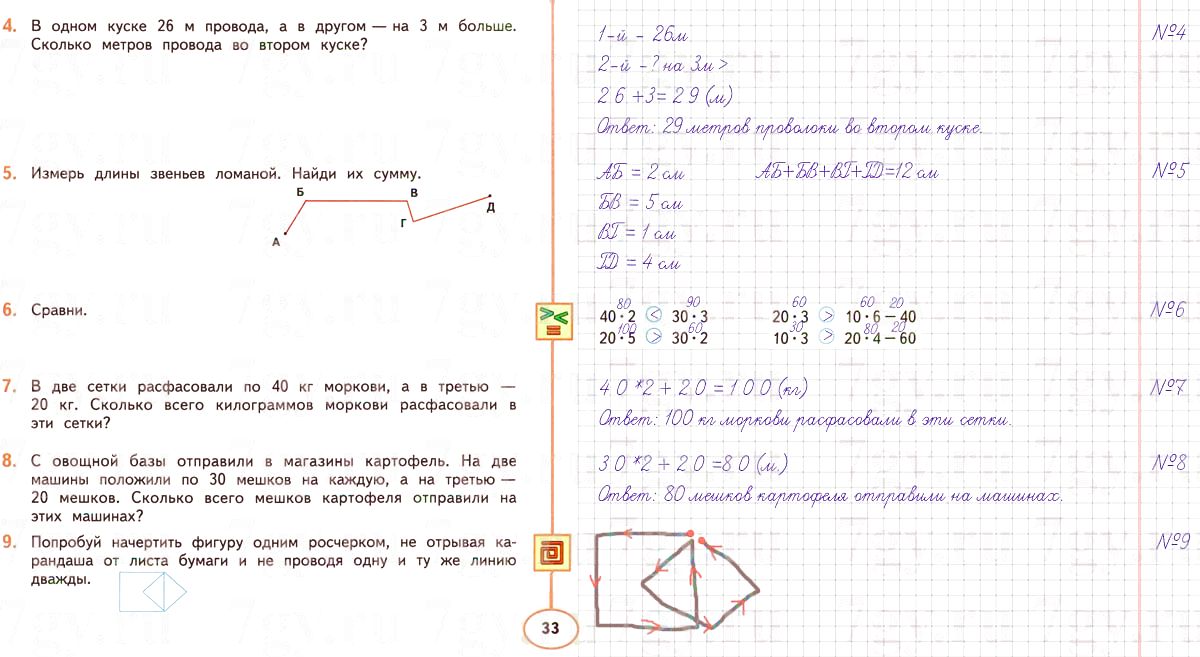 4. В одном куске 26 м провода, а в другом — на 3 м больше.
Сколько метров провода во втором куске?
1-й - 26м
2-й - ? на 3м >
26 +3= 29 (м)
Ответ: 29 метров проволоки во втором куске.
№4
5. Измерь длины звеньев ломаной. Найди их сумму.
А Б В Г Д
АБ = 2 см АБ+БВ+ВГ+ГД=12 см
БВ = 5 см
ВГ = 1 см
ГД = 4 см
№5
6. Сравни.
80 90 60 60 20
40 · 2 < 30 · 3 20 · 3 > 10 · 6 – 40
100 60 30 80 20
20 · 5 > 30 · 2 10 · 3 > 20 · 4 – 60
№6
7. В две сетки расфасовали по 40 кг моркови, а в третью —
20 кг. Сколько всего килограммов моркови расфасовали в
эти сетки?
40*2 + 20 = 100 (кг)
Ответ: 100 кг моркови расфасовали в эти сетки.
№7
8. С овощной базы отправили в магазины картофель. На две
машины положили по 30 мешков на каждую, а на третью —
20 мешков. Сколько всего мешков картофеля отправили на
этих машинах?
30*2 + 20 =80 (м.)
Ответ: 80 мешков картофеля отправили на машинах.
№8
9. Попробуй начертить фигуру одним росчерком, не отрывая ка-
рандаша от листа бумаги и не проводя одну и ту же линию
дважды.
№9
33